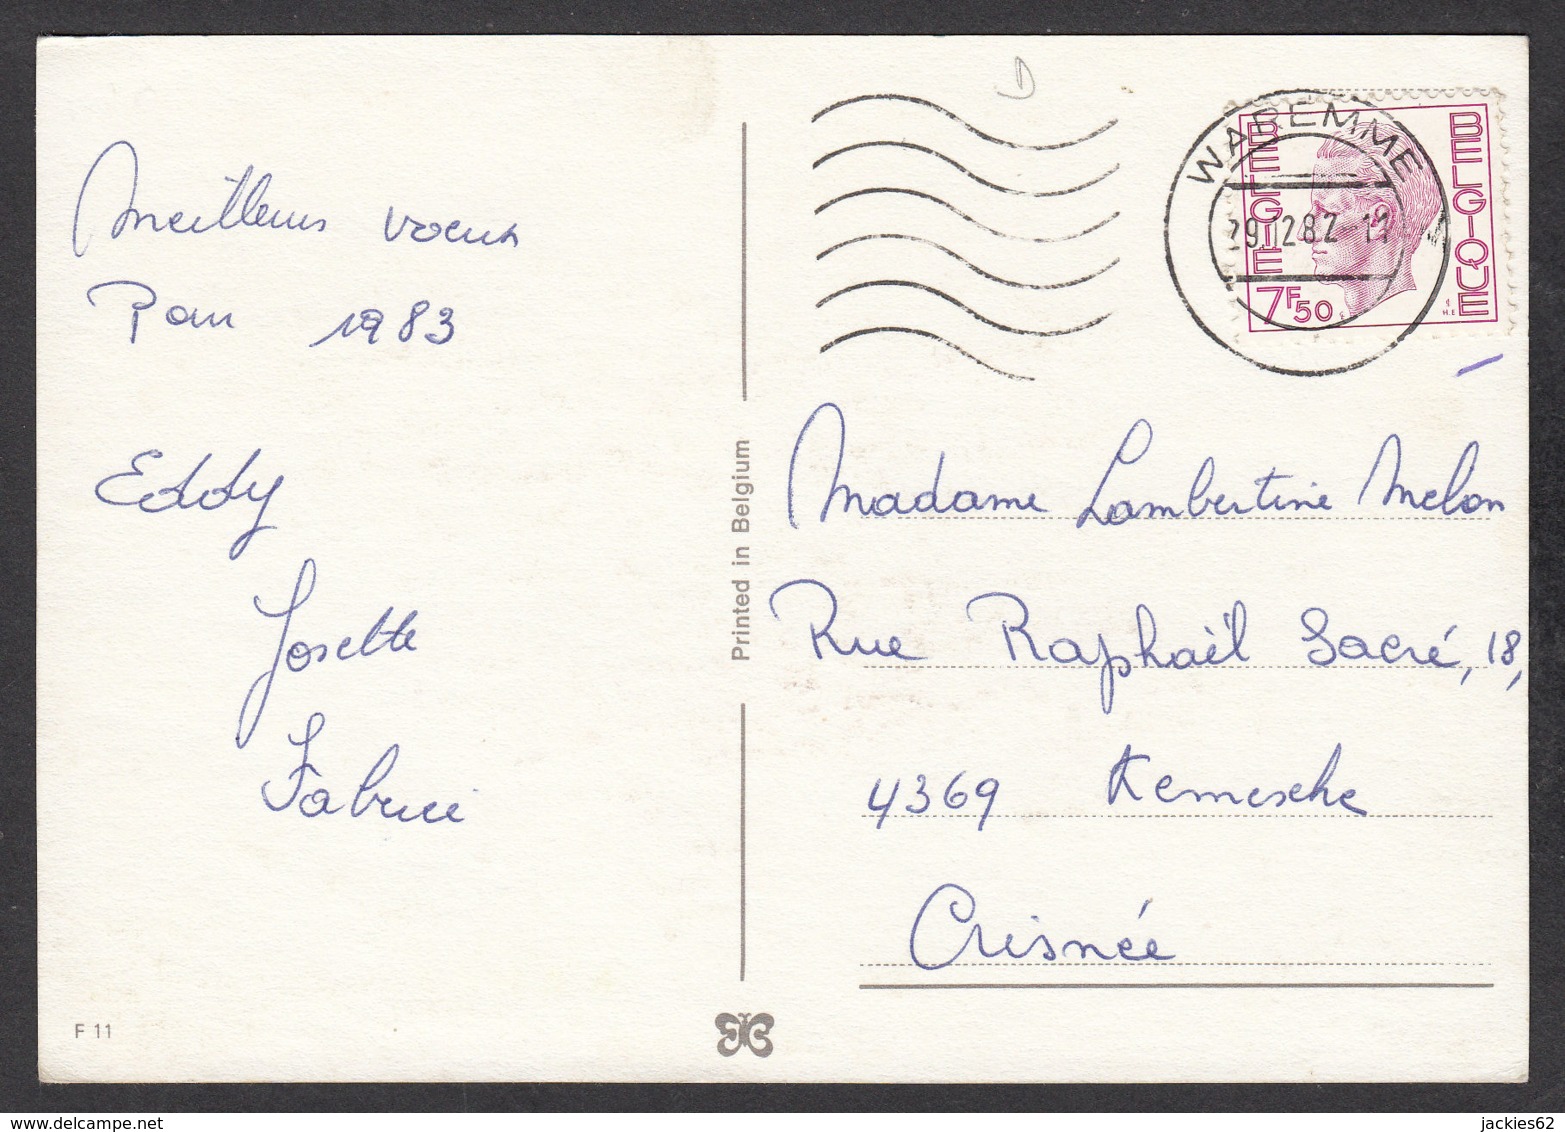 Meilleurs voeux
Pour 1983
Eddy
Josette
Fabrice
F 11
Printed in Belgium
D
WAREMME
29.12.82
BELGIE
BELGIQUE
7F50
H.E
Madame Lambertine Melon
Rue Raphaël Sacré, 18,
4369 Kemexhe
Crisnée
jackies62